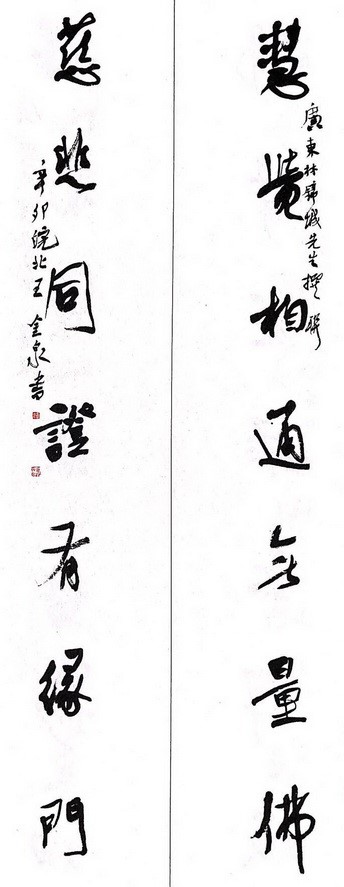 慧覺相通無量佛
廣東林錦城先生撰聯
慈悲同證有緣門
辛卯皖北王金泉書